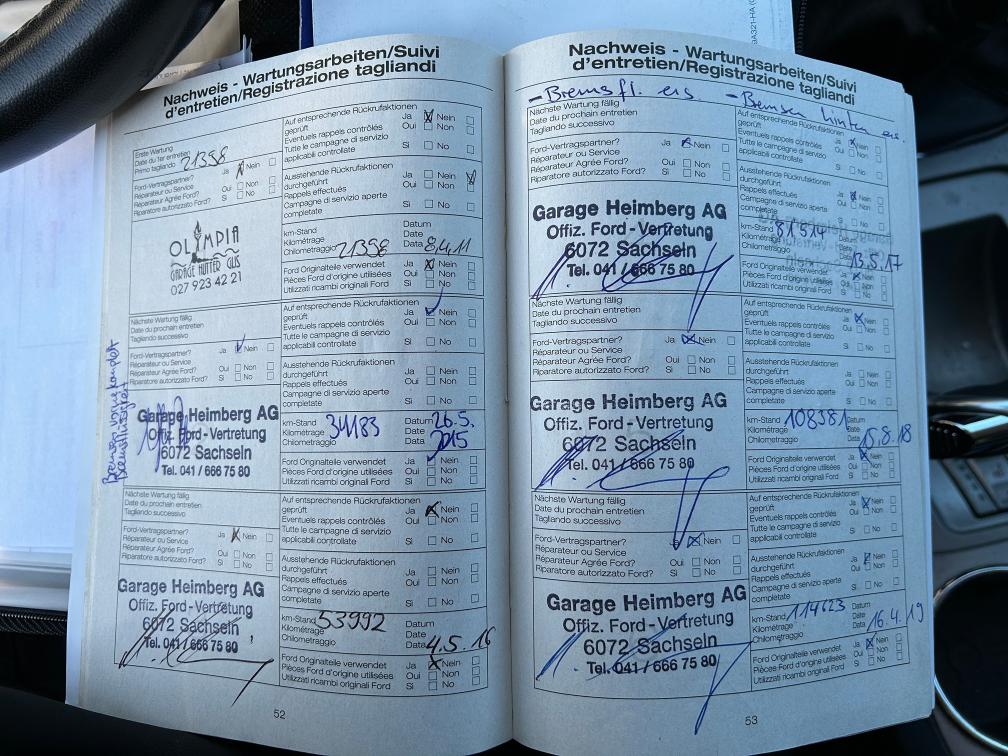 Nachweis - Wartungsarbeiten/Suivi
d'entretien/Registrazione tagliandi
Erste Wartung
Date du 1er entretien
Primo tagliando 21358
Ford-Vertragspartner? Ja Nein
Réparateur ou Service Oui Non
Réparateur Agréé Ford?
Riparatore autorizzato Ford? Si No
OLYMPIA
GARAGE HUTTER GLIS
027 923 42 21
Auf entsprechende Rückrufaktionen Ja Nein
geprüft Oui Non
Eventuels rappels contrôlés
Tutte le campagne di servizio Si No
applicabili controllate
Ausstehende Rückrufaktionen Ja Nein
durchgeführt Oui Non
Rappels effectués
Campagne di servizio aperte Si No
completate
km-Stand Datum
Kilométrage 21358 Date 8.4.11
Chilometraggio Data
Ford Originalteile verwendet Ja Nein
Pièces Ford d'origine utilisées Oui Non
Utilizzati ricambi originali Ford Si No
Nächste Wartung fällig
Date du prochain entretien
Tagliando successivo
Ford-Vertragspartner? Ja Nein
Réparateur ou Service Oui Non
Réparateur Agréé Ford?
Riparatore autorizzato Ford? Si No
Bremsflüssigkeit
Garage Heimberg AG
Offiz. Ford-Vertretung
6072 Sachseln
Tel. 041 / 666 75 80
Auf entsprechende Rückrufaktionen Ja Nein
geprüft Oui Non
Eventuels rappels contrôlés
Tutte le campagne di servizio Si No
applicabili controllate
Ausstehende Rückrufaktionen Ja Nein
durchgeführt Oui Non
Rappels effectués
Campagne di servizio aperte Si No
completate
km-Stand 34183 Datum 26.5.
Kilométrage Date 2015
Chilometraggio Data
Ford Originalteile verwendet Ja Nein
Pièces Ford d'origine utilisées Oui Non
Utilizzati ricambi originali Ford Si No
Nächste Wartung fällig
Date du prochain entretien
Tagliando successivo
Ford-Vertragspartner? Ja Nein
Réparateur ou Service Oui Non
Réparateur Agréé Ford?
Riparatore autorizzato Ford? Si No
Garage Heimberg AG
Offiz. Ford-Vertretung
6072 Sachseln
Tel. 041 / 666 75 80
Auf entsprechende Rückrufaktionen Ja Nein
geprüft Oui Non
Eventuels rappels contrôlés
Tutte le campagne di servizio Si No
applicabili controllate
Ausstehende Rückrufaktionen Ja Nein
durchgeführt Oui Non
Rappels effectués
Campagne di servizio aperte Si No
completate
km-Stand 53992 Datum
Kilométrage Date
Chilometraggio Data 4.5.16
Ford Originalteile verwendet Ja Nein
Pièces Ford d'origine utilisées Oui Non
Utilizzati ricambi originali Ford Si No
52
Nachweis - Wartungsarbeiten/Suivi
d'entretien/Registrazione tagliandi
- Bremsfl. ers. - Bremsen hinten ers
Nächste Wartung fällig
Date du prochain entretien
Tagliando successivo
Ford-Vertragspartner? Ja Nein
Réparateur ou Service Oui Non
Réparateur Agréé Ford?
Riparatore autorizzato Ford? Si No
Garage Heimberg AG
Offiz. Ford-Vertretung
6072 Sachseln
Tel. 041 / 666 75 80
Auf entsprechende Rückrufaktionen Ja Nein
geprüft Oui Non
Eventuels rappels contrôlés
Tutte le campagne di servizio Si No
applicabili controllate
Ausstehende Rückrufaktionen Ja Nein
durchgeführt Oui Non
Rappels effectués
Campagne di servizio aperte Si No
completate
km-Stand 81514 Datum
Kilométrage Date
Chilometraggio Data 13.5.17
Ford Originalteile verwendet Ja Nein
Pièces Ford d'origine utilisées Oui Non
Utilizzati ricambi originali Ford Si No
Nächste Wartung fällig
Date du prochain entretien
Tagliando successivo
Ford-Vertragspartner? Ja Nein
Réparateur ou Service Oui Non
Réparateur Agréé Ford?
Riparatore autorizzato Ford? Si No
Garage Heimberg AG
Offiz. Ford-Vertretung
6072 Sachseln
Tel. 041 / 666 75 80
Auf entsprechende Rückrufaktionen Ja Nein
geprüft Oui Non
Eventuels rappels contrôlés
Tutte le campagne di servizio Si No
applicabili controllate
Ausstehende Rückrufaktionen Ja Nein
durchgeführt Oui Non
Rappels effectués
Campagne di servizio aperte Si No
completate
km-Stand 108381 Datum
Kilométrage Date
Chilometraggio Data 15.8.18
Ford Originalteile verwendet Ja Nein
Pièces Ford d'origine utilisées Oui Non
Utilizzati ricambi originali Ford Si No
Nächste Wartung fällig
Date du prochain entretien
Tagliando successivo
Ford-Vertragspartner? Ja Nein
Réparateur ou Service Oui Non
Réparateur Agréé Ford?
Riparatore autorizzato Ford? Si No
Garage Heimberg AG
Offiz. Ford-Vertretung
6072 Sachseln
Tel. 041 / 666 75 80
Auf entsprechende Rückrufaktionen Ja Nein
geprüft Oui Non
Eventuels rappels contrôlés
Tutte le campagne di servizio Si No
applicabili controllate
Ausstehende Rückrufaktionen Ja Nein
durchgeführt Oui Non
Rappels effectués
Campagne di servizio aperte Si No
completate
km-Stand 114623 Datum
Kilométrage Date 16.4.19
Chilometraggio Data
Ford Originalteile verwendet Ja Nein
Pièces Ford d'origine utilisées Oui Non
Utilizzati ricambi originali Ford Si No
53